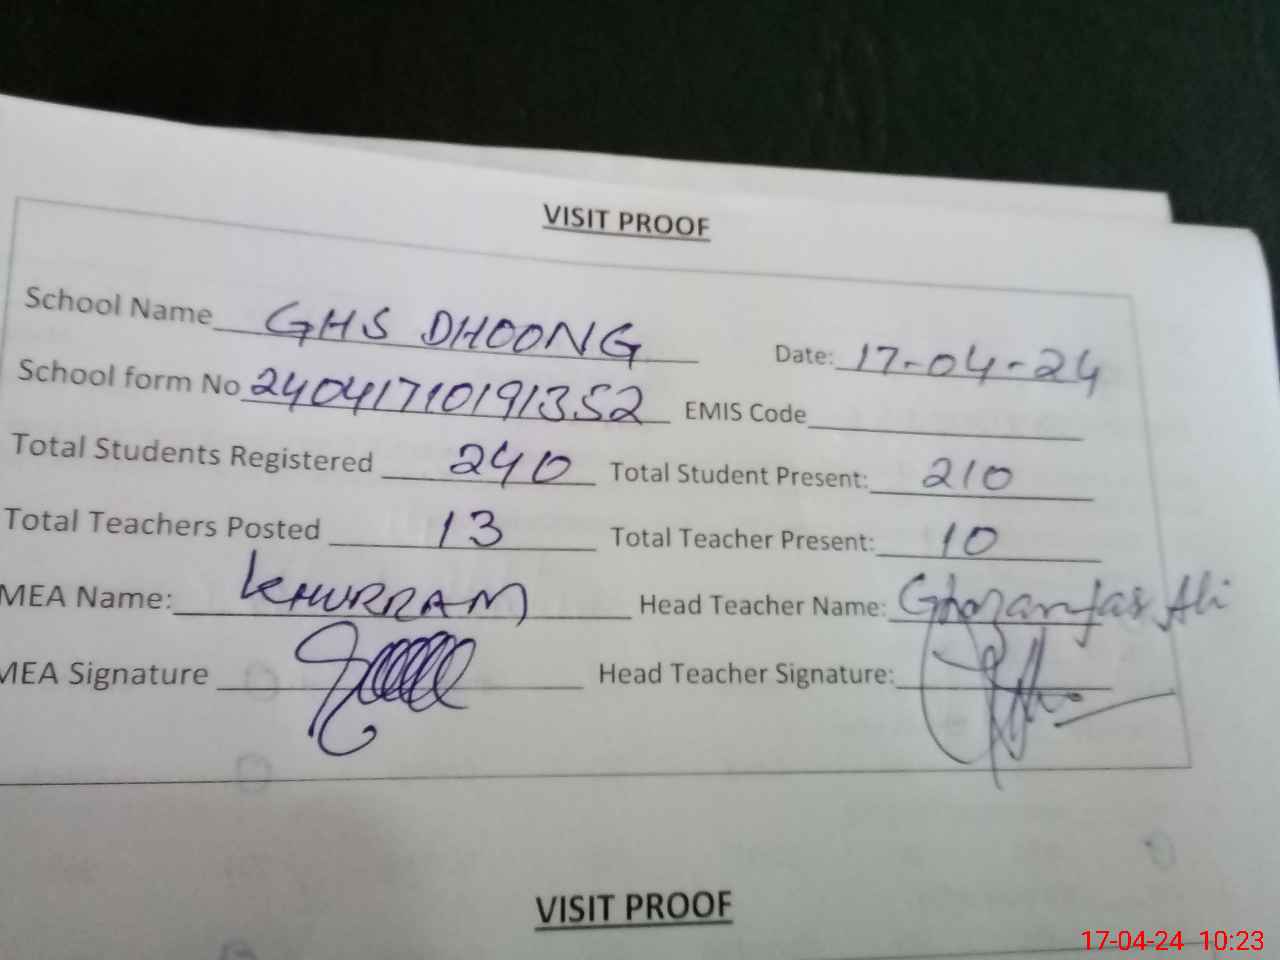 VISIT PROOF
School Name GHS DHOONG Date: 17-04-24
School form No 24041710191352 EMIS Code
Total Students Registered 240 Total Student Present: 210
Total Teachers Posted 13 Total Teacher Present: 10
MEA Name: KHURRAM Head Teacher Name: Ali
MEA Signature Head Teacher Signature:
VISIT PROOF
17-04-24 10:23